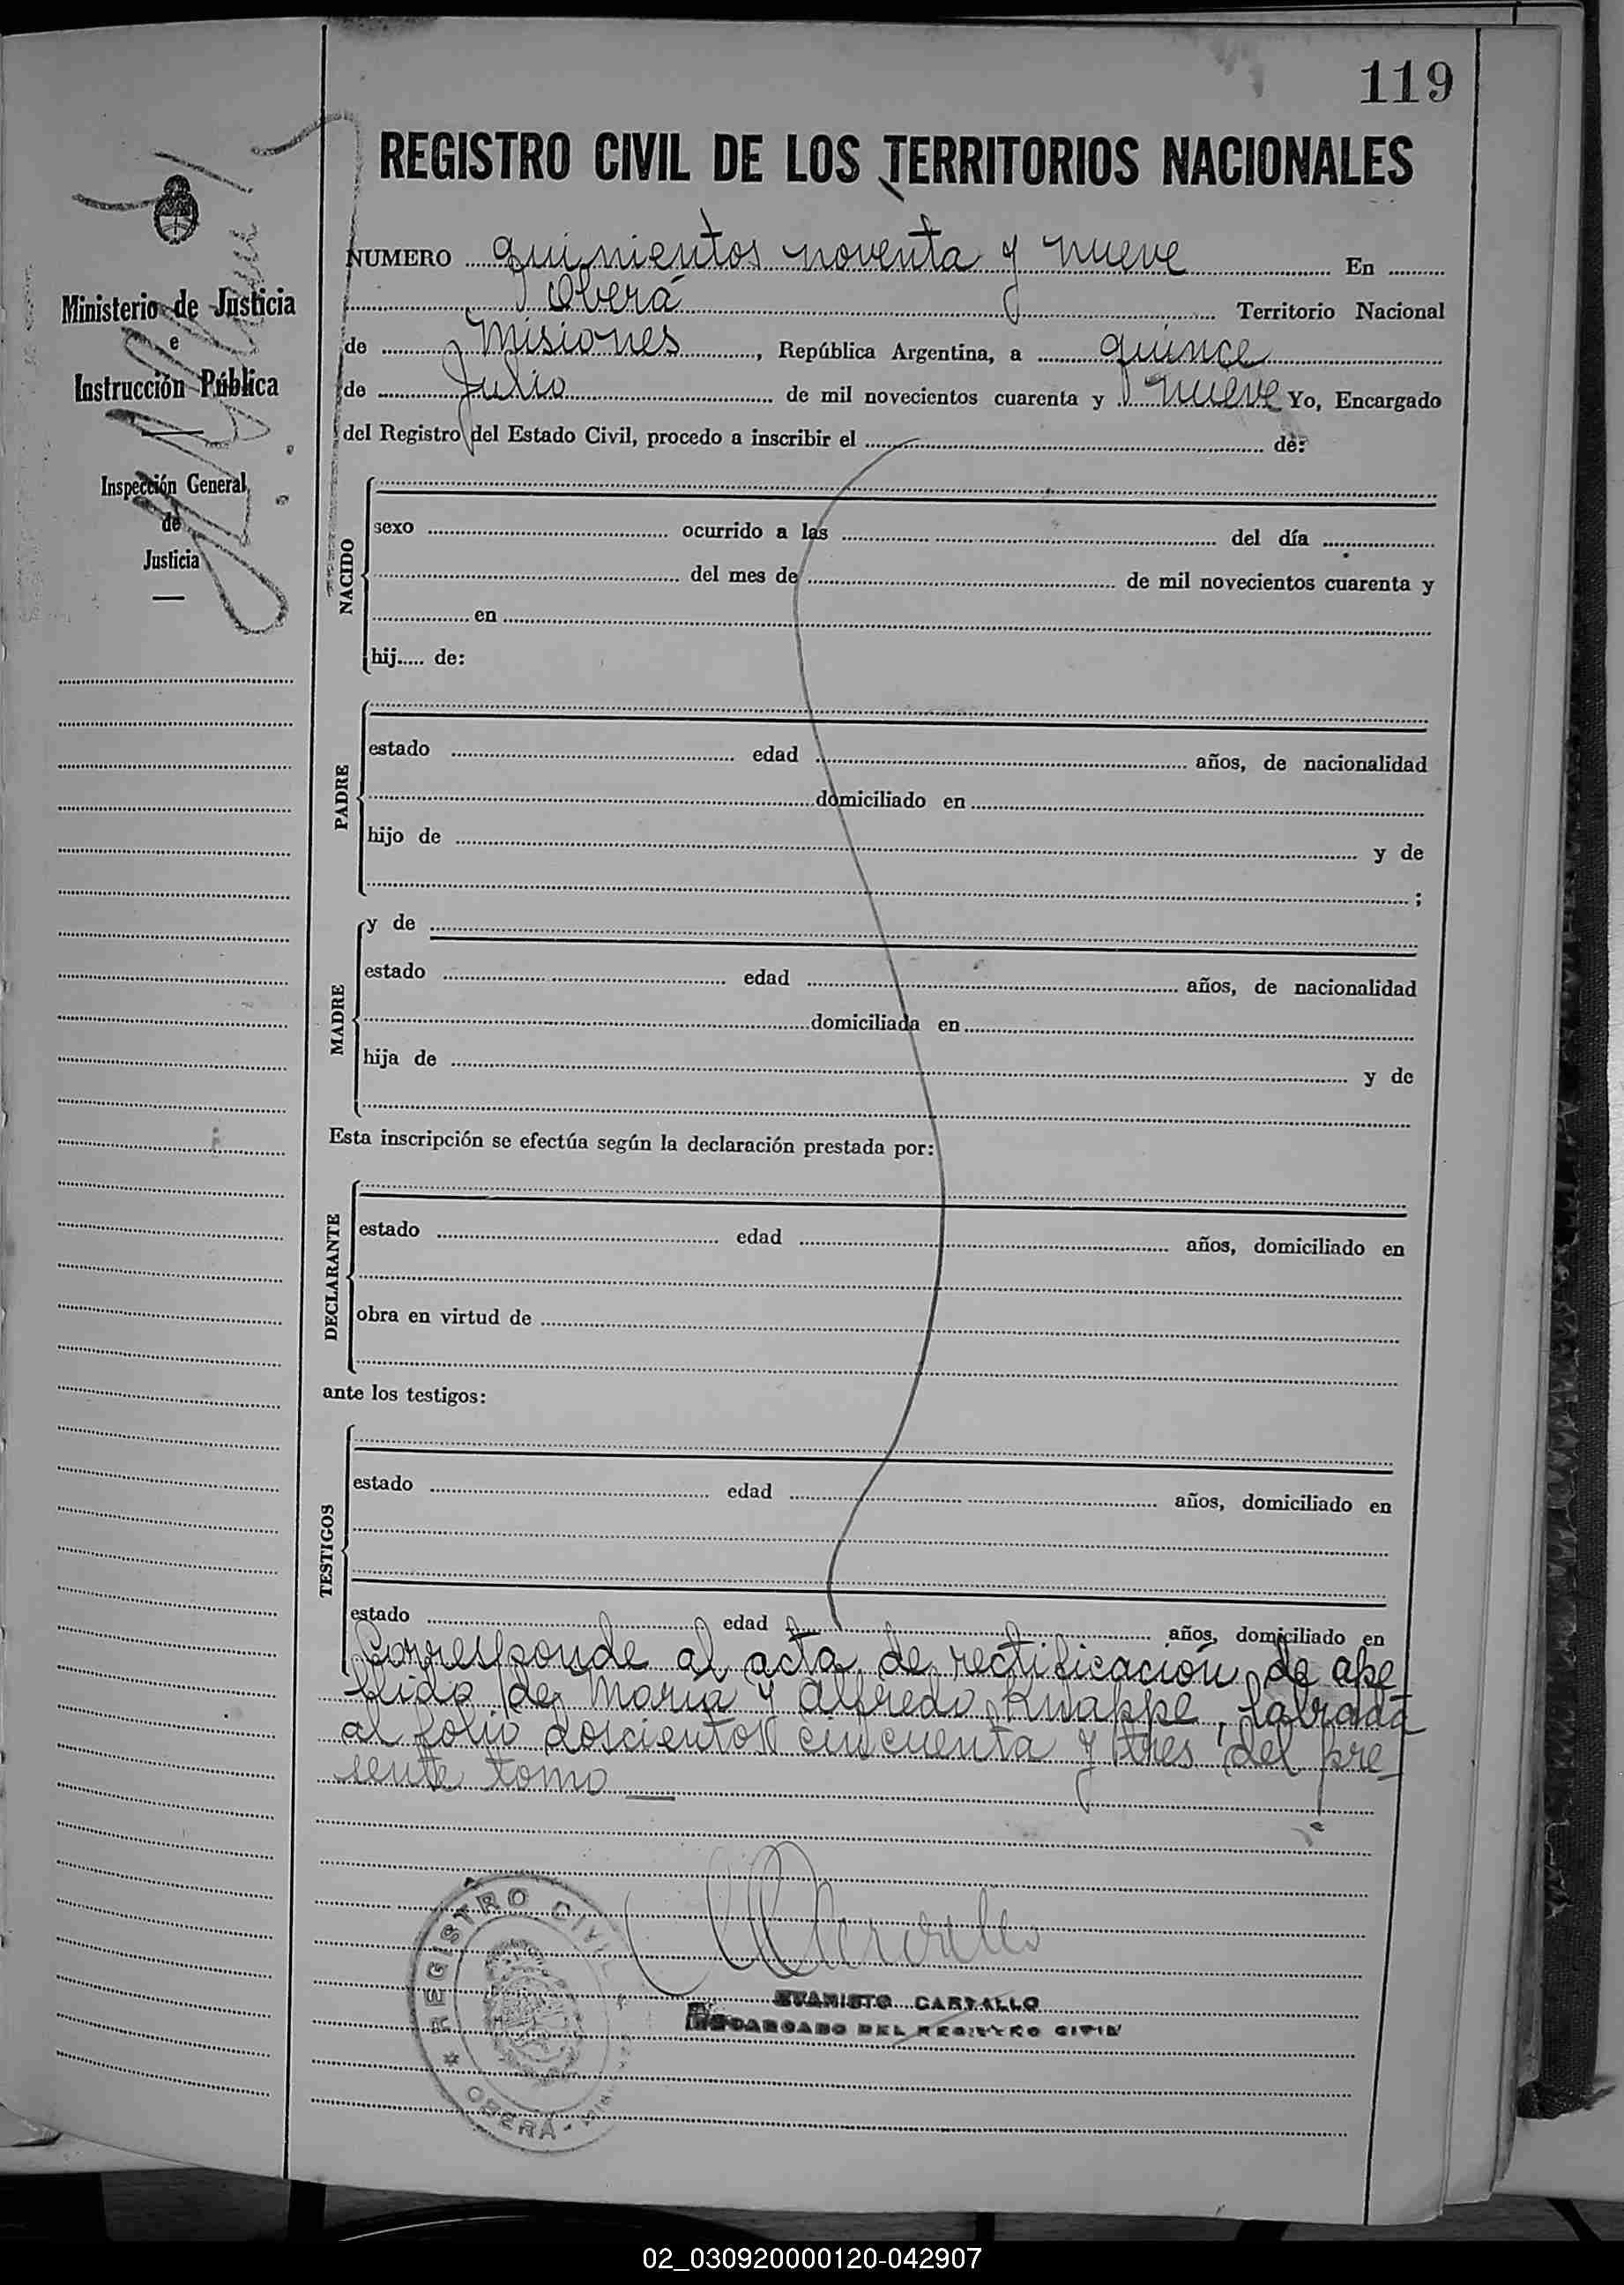 119
REGISTRO CIVIL DE LOS TERRITORIOS NACIONALES
Ministerio de Justicia
e
Instrucción Pública
Inspección General
de
Justicia
NUMERO quinientos noventa y nueve En
Oberá Territorio Nacional
de Misiones, República Argentina, a quince
de Julio de mil novecientos cuarenta y nueve Yo, Encargado
del Registro del Estado Civil, procedo a inscribir el de:
NACIDO
sexo ocurrido a las del día
del mes de de mil novecientos cuarenta y
en
hij..... de:
PADRE
estado edad años, de nacionalidad
domiciliado en
hijo de y de
;
MADRE
y de
estado edad años, de nacionalidad
domiciliada en
hija de y de
Esta inscripción se efectúa según la declaración prestada por:
DECLARANTE
estado edad años, domiciliado en
obra en virtud de
ante los testigos:
TESTIGOS
estado edad años, domiciliado en
estado edad años, domiciliado en
Corresponde al acta de rectificación de ape
llido de María y Alfredo Knappe, labrada
al folio doscientos cincuenta y tres del pre_
sente tomo
REGISTRO CIVIL
OBERÁ - MIS.
EVARISTO CARVALLO
ENCARGADO DEL REGISTRO CIVIL
02_030920000120-042907